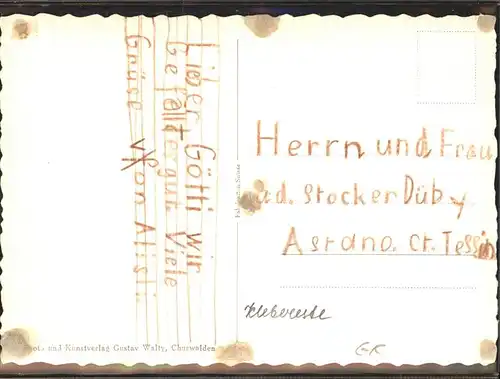 Liber Götti wir
Gefallt er gut. Viele
Grüse von Alisli
Herrn und Frau
ad. Stocker Düby
Astano. Ct. Tessin
Kleberreste
GK
Phot.- und Kunstverlag Gustav Walty, Churwalden